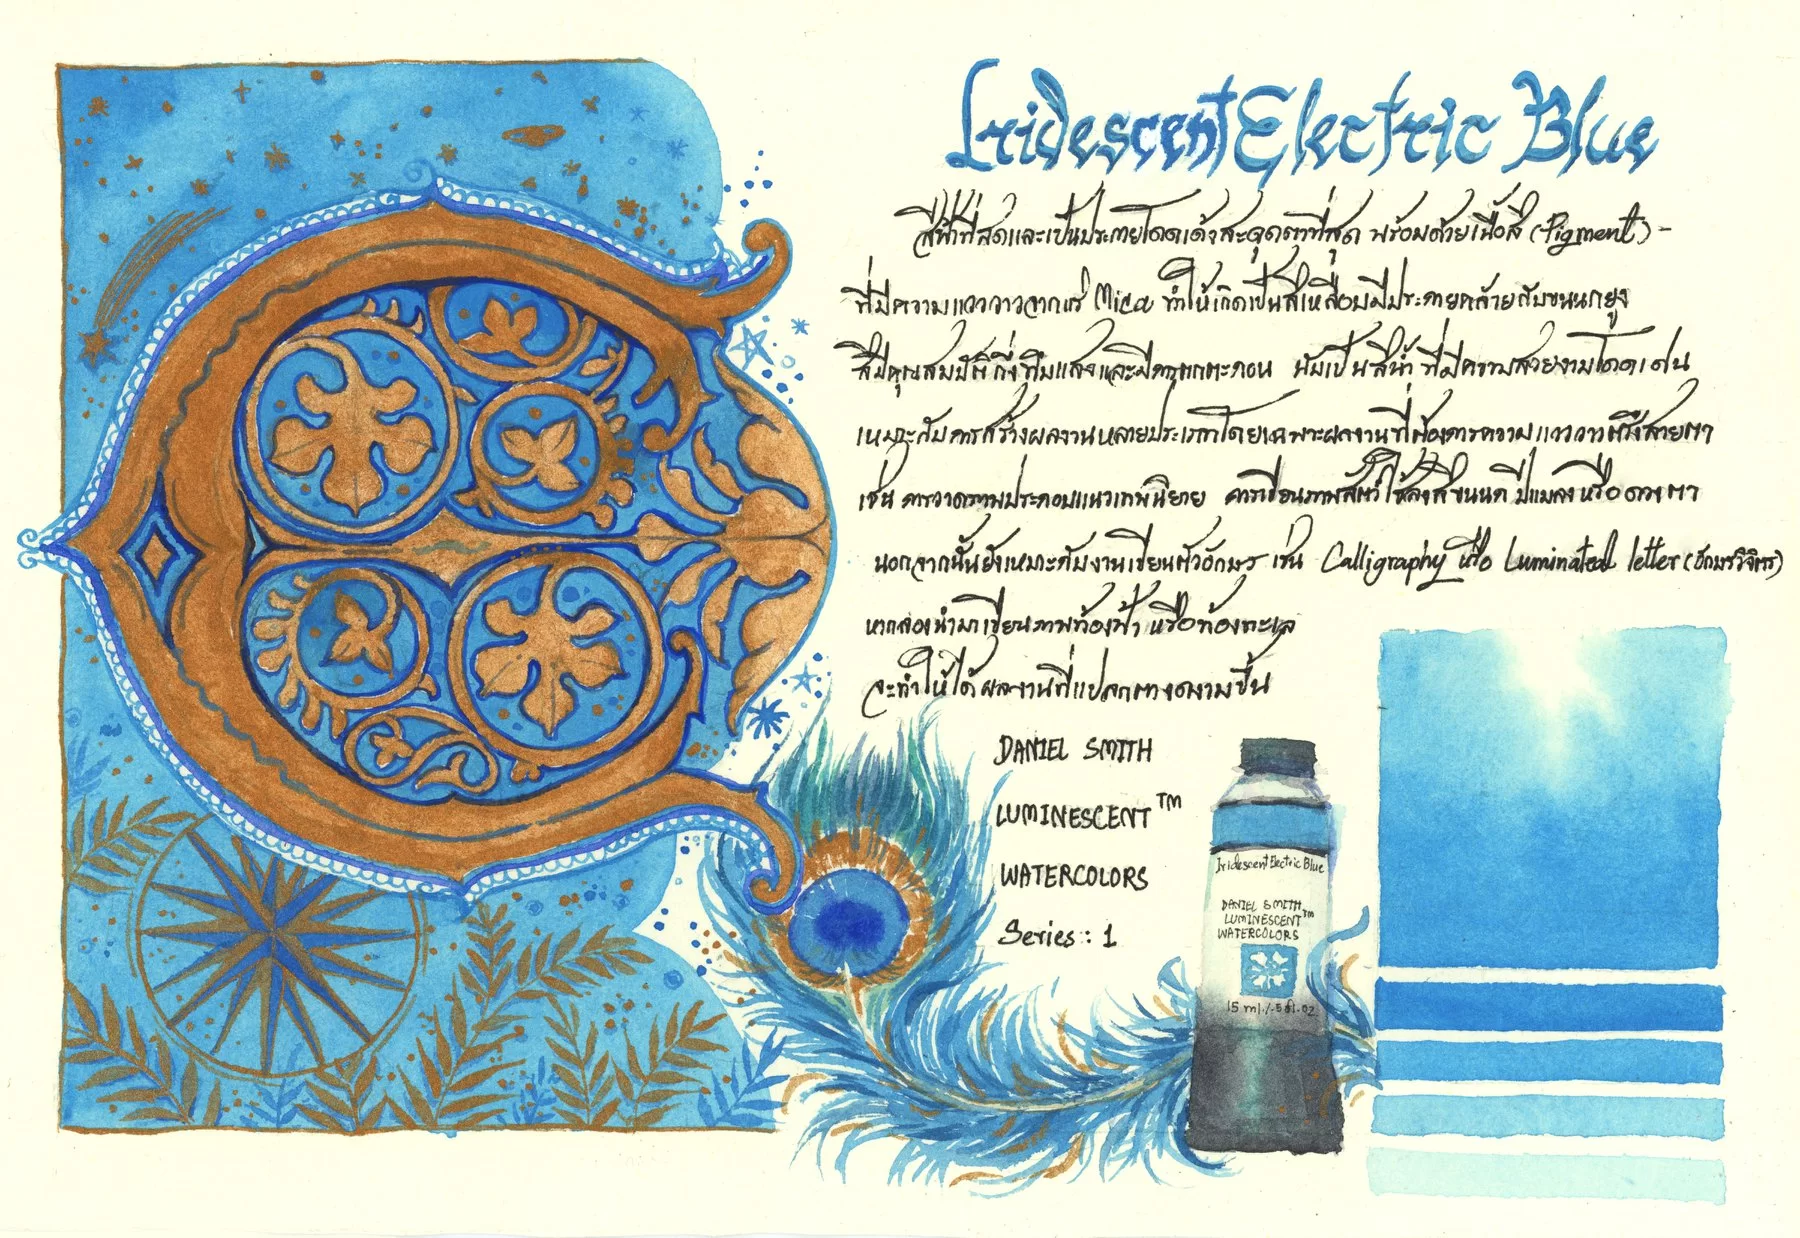 Iridescent Electric Blue
สีฟ้าที่สดและเป็นประกายโดดเด้งสะดุดตาที่สุด พร้อมด้วยเนื้อสี (Pigment) -
ที่มีความแวววาวจากแร่ Mica ทำให้เกิดเป็นสีเหลือบมีประกายคล้ายกับขนนกยูง
สีมีคุณสมบัติกึ่งทึบแสงและมีการตกตะกอน นับเป็นสีน้ำที่มีความสวยงามโดดเด่น
เหมาะกับการสร้างผลงานหลายประเภทโดยเฉพาะผลงานที่ต้องการความแวววาวตรึงสายตา
เช่น การวาดภาพประกอบแนวเทพนิยาย การเขียนภาพสัตว์ ใช้ลงสีขนนก ปีกแมลง หรือดวงตา
นอกจากนั้นยังเหมาะกับงานเขียนตัวอักษร เช่น Calligraphy หรือ Luminated letter (อักษรวิจิตร)
หากลองนำมาเขียนภาพท้องฟ้า หรือท้องทะเล
จะทำให้ได้ผลงานที่แปลกตางดงามขึ้น
DANIEL SMITH
LUMINESCENT™
WATERCOLORS
Series : 1
Iridescent Electric Blue
DANIEL SMITH
LUMINESCENT™
WATERCOLORS
15 ml./.5 fl.oz.